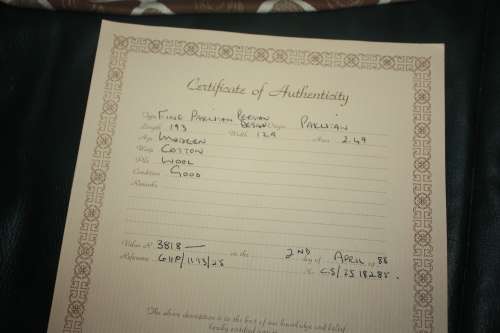 Certificate of Authenticity
Type FINE PAKISTAN PERSIAN DESIGN Origin PAKISTAN
Length 193 Width 129 Area 2.49
Age MODERN
Warp COTTON
Pile WOOL
Condition GOOD
Remarks
Value 3818 — on the 2ND day of APRIL 88
Reference GHP/1193/28 No
The above description is to the best of our knowledge and belief